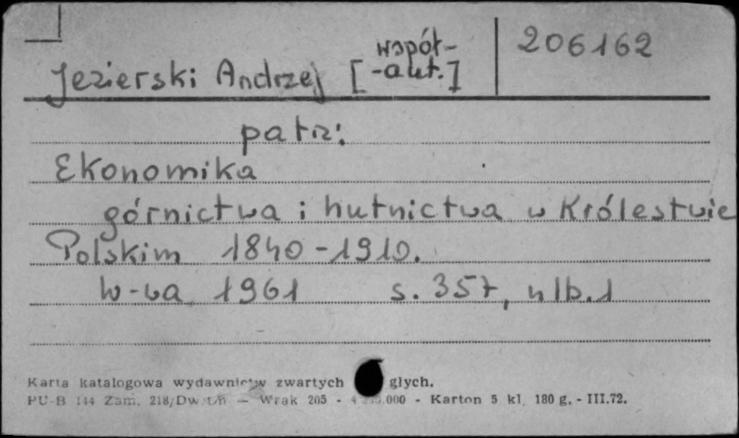 Jezierski Andrzej [współ-
-aut.]
206162
patrz:
Ekonomika
górnictwa i hutnictwa w Królestwie
Polskim 1840-1910.
W-wa 1961 s. 357, nlb. 1
Karta katalogowa wydawnictw zwartych głych.
PU-B 144 Zam. 218/Dw — Wrak 205 - 000 - Karton 5 kl. 180 g. - III.72.